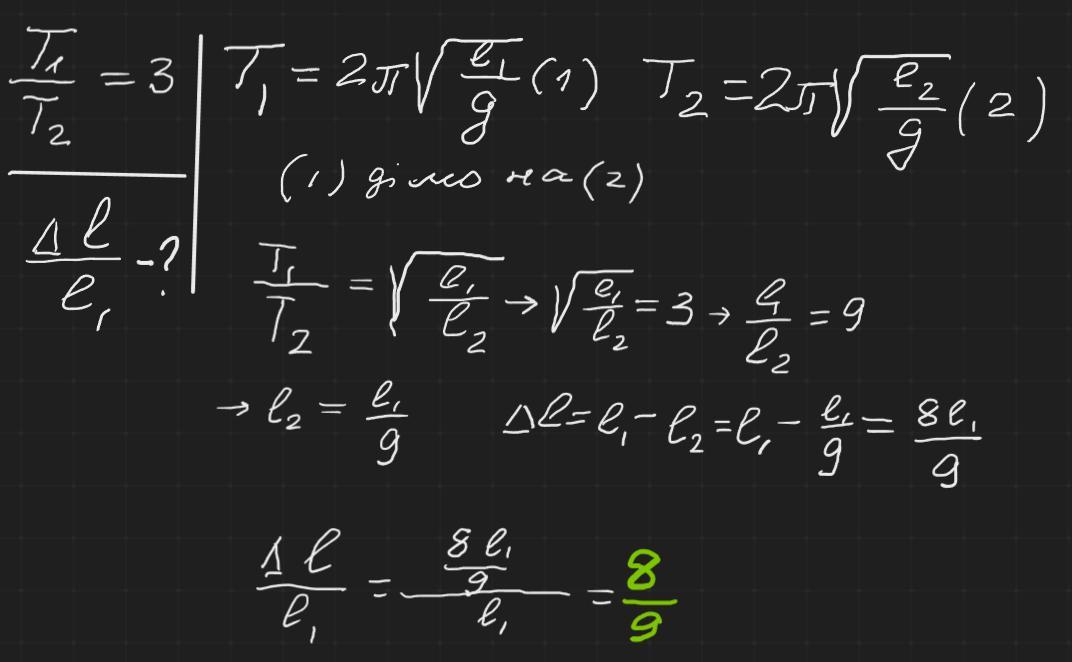 T₁/T₂ = 3
Δl/l₁ - ?
T₁ = 2π√(l₁/g) (1) T₂ = 2π√(l₂/g) (2)
(1) ділимо на (2)
T₁/T₂ = √(l₁/l₂) → √(l₁/l₂) = 3 → l₁/l₂ = 9
→ l₂ = l₁/9 Δl = l₁ - l₂ = l₁ - l₁/9 = 8l₁/9
Δl/l₁ = (8l₁/9)/l₁ = 8/9